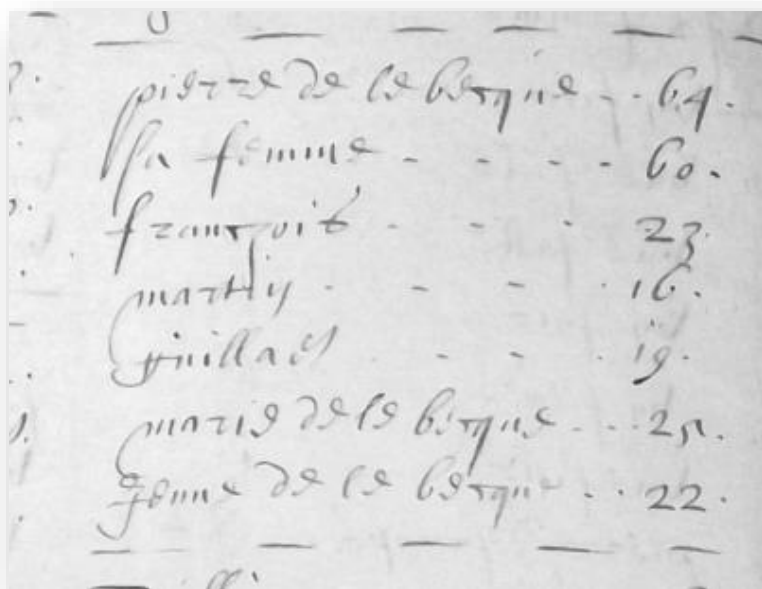 pierre de le becque - - 64.
sa femme - - - - 60.
franchois - - - 23.
martin - - - - 16.
guillaes - - - 19.
marie de le becque - - - 25.
jenne de le becque - - 22.